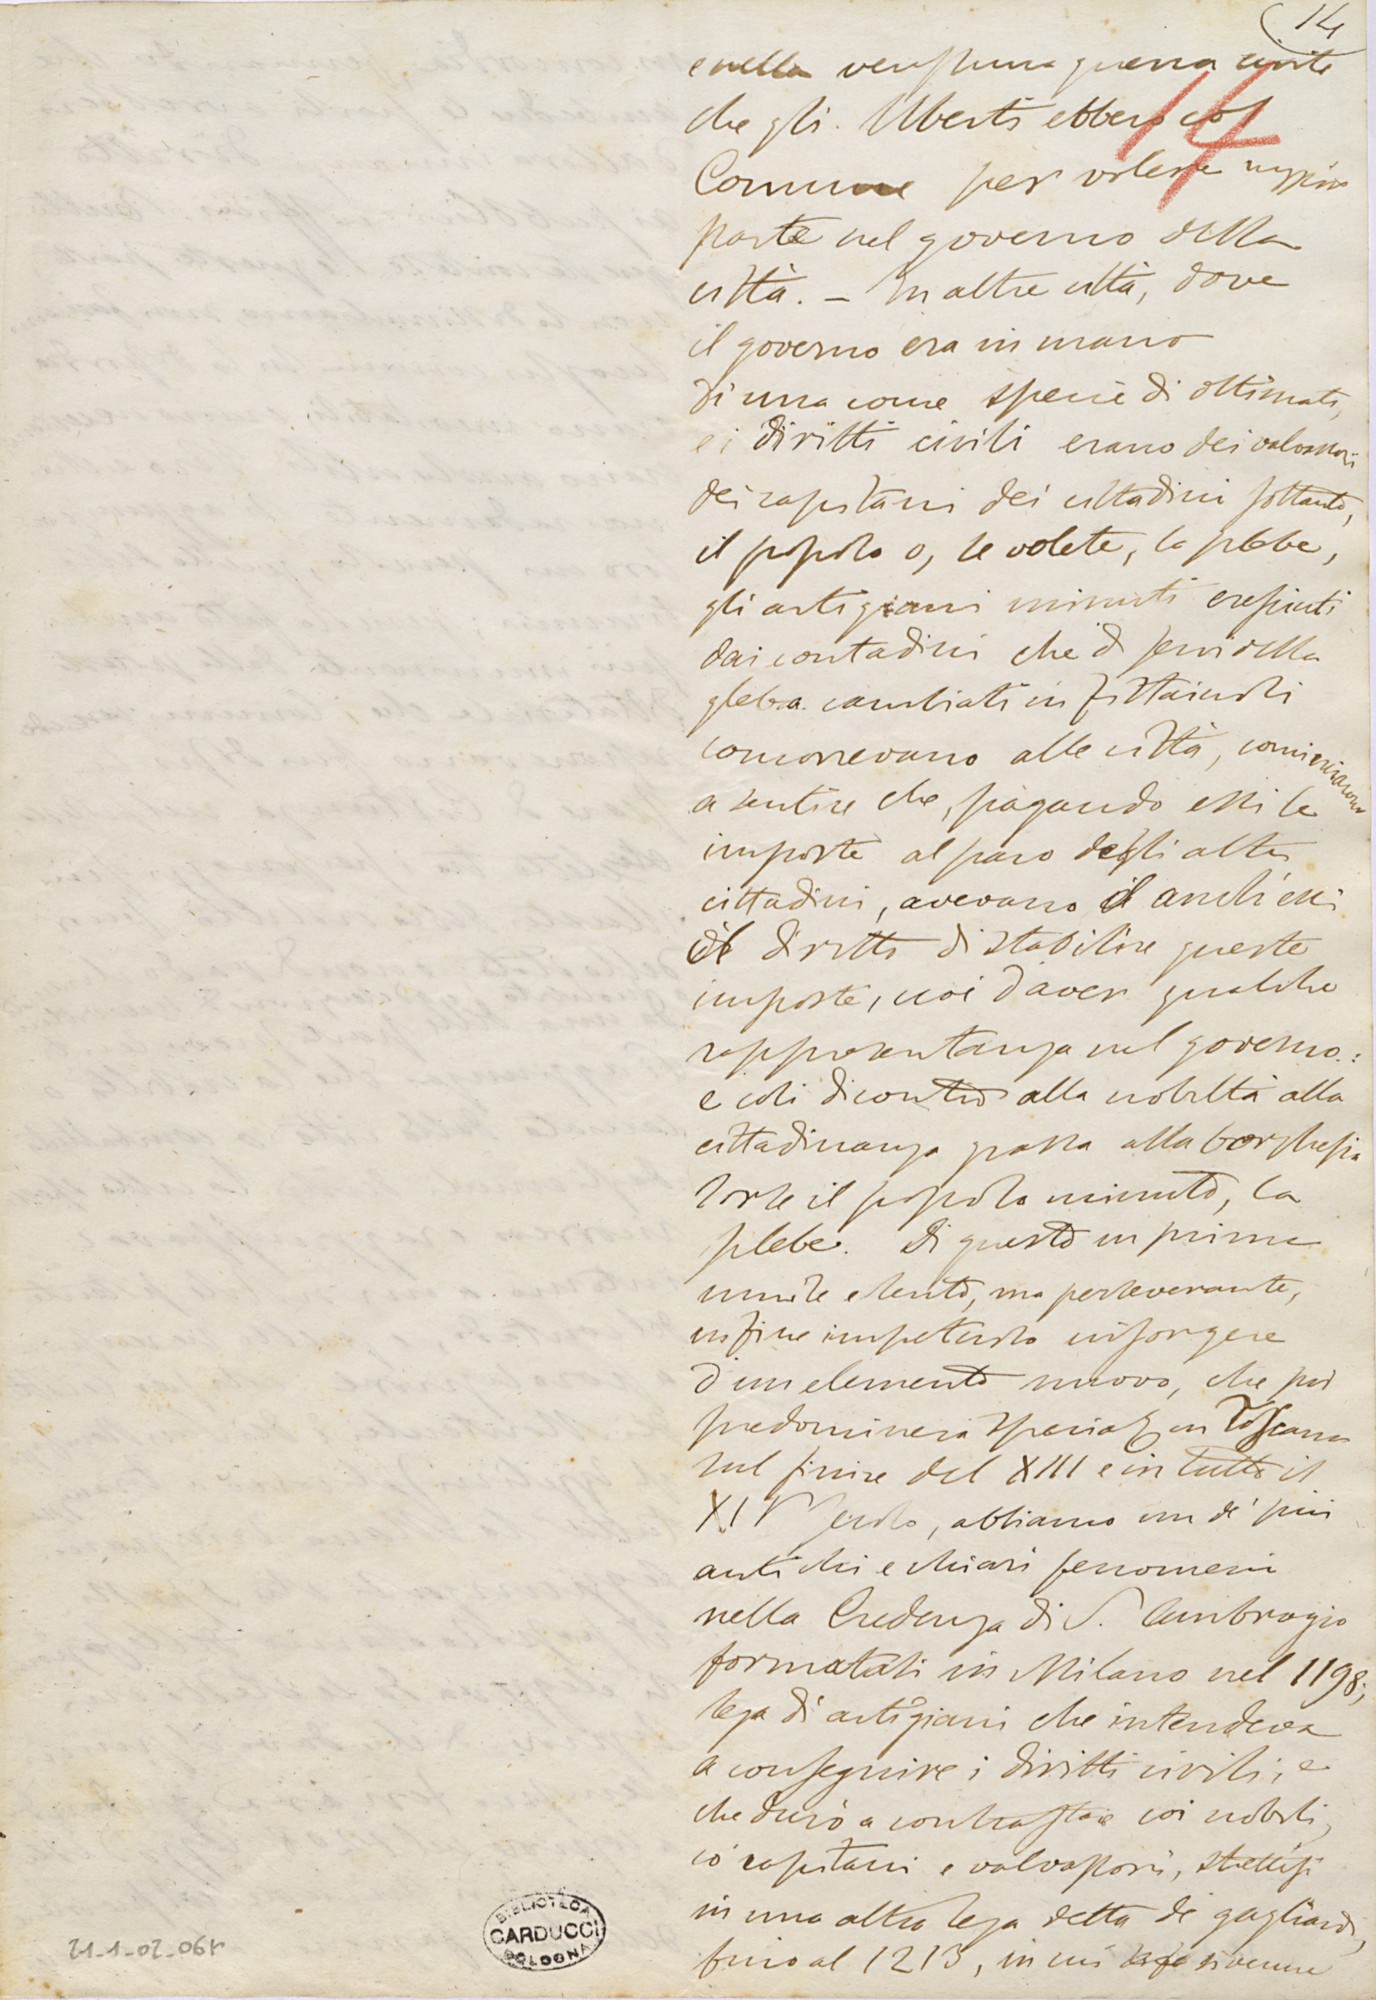 14
e nella guerra civile
che gli Uberti ebbero col
14
Comune per volere maggior
parte nel governo della
città. – In altre città, dove
il governo era in mano
di una come specie di ottimati,
e i diritti civili erano dei valvassori
dei capitani dei cittadini soltanto,
il popolo o, se volete, la plebe,
gli artigiani minuti cresciuti
dai contadini che di servi della
gleba cambiati in fittaiuoli
concorrevano alle città, cominciarono
a sentire che, pagando essi le
imposte al paro degli altri
cittadini, avevano anch'essi
il diritto di stabilire queste
imposte, cioè d'aver qualche
rappresentanza nel governo:
e così di contro alla nobiltà alla
cittadinanza grassa alla borghesia
sorse il popolo minuto, la
plebe. Di questo in prima
umile e lento, ma perseverante,
infine impetuoso insorgere
d'un elemento nuovo, che poi
predominerà in Toscana
sul finire del XIII e in tutto il
XIV secolo, abbiamo un de' più
antichi e chiari fenomeni
nella Credenza di S. Ambrogio
formatasi in Milano nel 1198;
lega di artigiani che intendeva
a conseguire i diritti civili, e
che durò a contrastare coi nobili,
co' capitani e valvassori, strettisi
in una altra lega detta de' gagliardi,
fino al 1213, in cui divenne
BIBLIOTECA
CARDUCCI
BOLOGNA